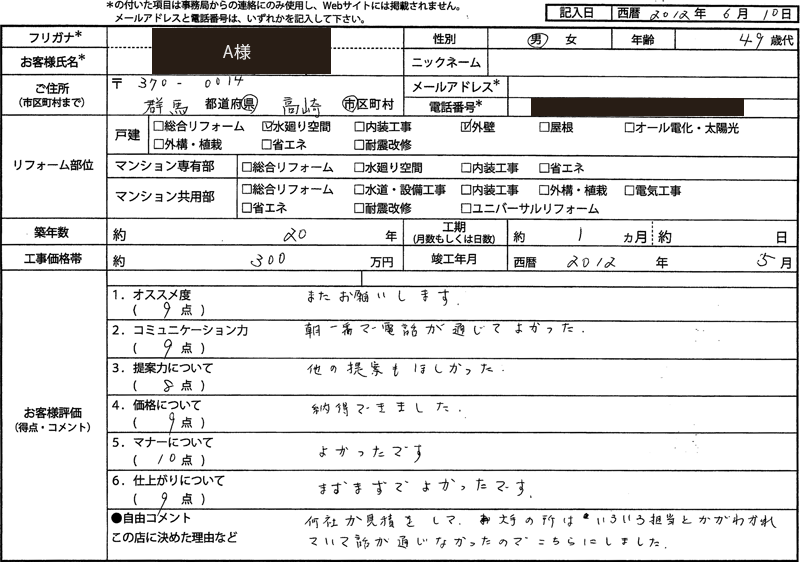 *の付いた項目は事務局からの連絡にのみ使用し、Webサイトには掲載されません。
メールアドレスと電話番号は、いずれかを記入して下さい。
記入日 西暦 2012 年 6 月 10 日
フリガナ* A様 性別 男 女 年齢 49 歳代
お客様氏名* ニックネーム
ご住所 (市区町村まで) 〒 370 - 0014 メールアドレス*
群馬 都道府県 高崎 市区町村 電話番号*
リフォーム部位
戸建 □総合リフォーム ☑水廻り空間 □内装工事 ☑外壁 □屋根 □オール電化・太陽光
□外構・植栽 □省エネ □耐震改修
マンション専有部 □総合リフォーム □水廻り空間 □内装工事 □省エネ
マンション共用部 □総合リフォーム □水道・設備工事 □内装工事 □外構・植栽 □電気工事
□省エネ □耐震改修 □ユニバーサルリフォーム
築年数 約 20 年 工期 (月数もしくは日数) 約 1 ヵ月 約 日
工事価格帯 約 300 万円 竣工年月 西暦 2012 年 5 月
お客様評価
(得点・コメント)
1．オススメ度 またお願いします.
( 9 点 )
2．コミュニケーション力 朝一番で電話が通じてよかった.
( 9 点 )
3．提案力について 他の提案もほしかった.
( 8 点 )
4．価格について 納得できました.
( 9 点 )
5．マナーについて よかったです
( 10 点 )
6．仕上がりについて まずまずでよかったです.
( 9 点 )
●自由コメント 何社か見積をして. 大手の所は いろいろ担当とかがわかれ
この店に決めた理由など ていて話が通じなかったのでこちらにしました.